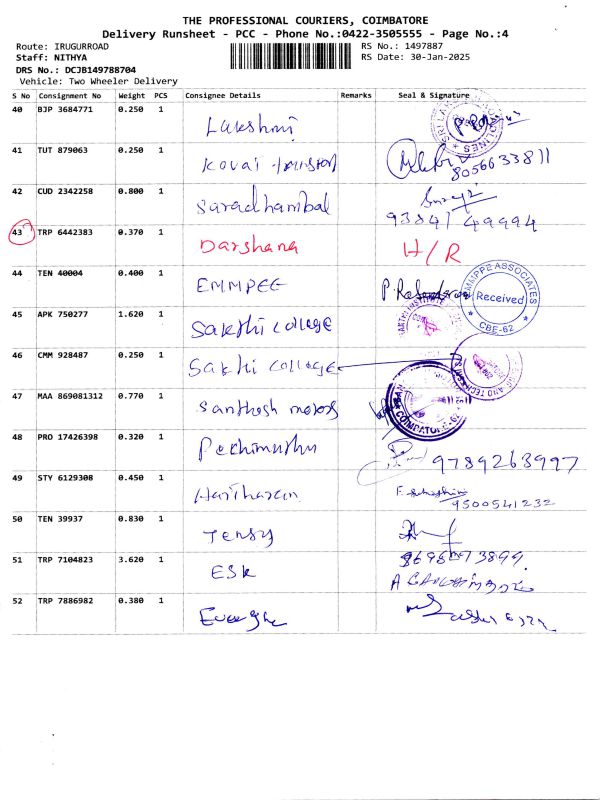 THE PROFESSIONAL COURIERS, COIMBATORE
Delivery Runsheet - PCC - Phone No.:0422-3505555 - Page No.:4
Route: IRUGURROAD
RS No.: 1497887
Staff: NITHYA
RS Date: 30-Jan-2025
DRS No.: DCJB149788704
Vehicle: Two Wheeler Delivery
S No Consignment No Weight PCS Consignee Details Remarks Seal & Signature
40 BJP 3684771 0.250 1 Lakshmi
41 TUT 879063 0.250 1 Kovai 8056633811
42 CUD 2342258 0.800 1 Saradhambal 93841 49994
43 TRP 6442383 0.370 1 Darshana H/R
44 TEN 40004 0.400 1 EMMPEE Received CBE-62
45 APK 750277 1.620 1 Sakthi college
46 CMM 928487 0.250 1 Sakthi college
47 MAA 869081312 0.770 1 Santhosh motors
48 PRO 17426398 0.320 1 Pechimuthu 9789263997
49 STY 6129308 0.450 1 Hariharan 9500541232
50 TEN 39937 0.830 1 Tensy
51 TRP 7104823 3.620 1 ESK
52 TRP 7886982 0.380 1